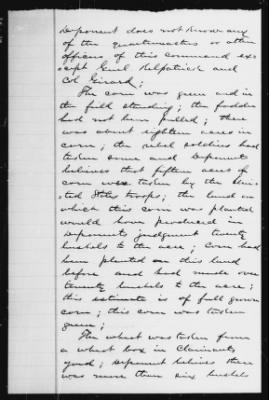 Deponent does not know any
of the quartermasters or other
officers of this command ex-
cept Genl Kilpatrick and
Col Girard;
The corn was green and in
the field standing; the fodder
had not been pulled; there
was about eighteen acres in
corn; the rebel soldiers had
taken some and Deponent
believes that fifteen acres of
corn were taken by the Uni-
ted States troops; the land on
which this corn was planted
would have produced in
Deponents judgment twenty
bushels to the acre; corn had
been planted on this land
before and had made over
twenty bushels to the acre;
this estimate is of full grown
corn; this corn was taken
green;
The wheat was taken from
a wheat box in Claimants
yard; deponent believes there
was more than six bushels